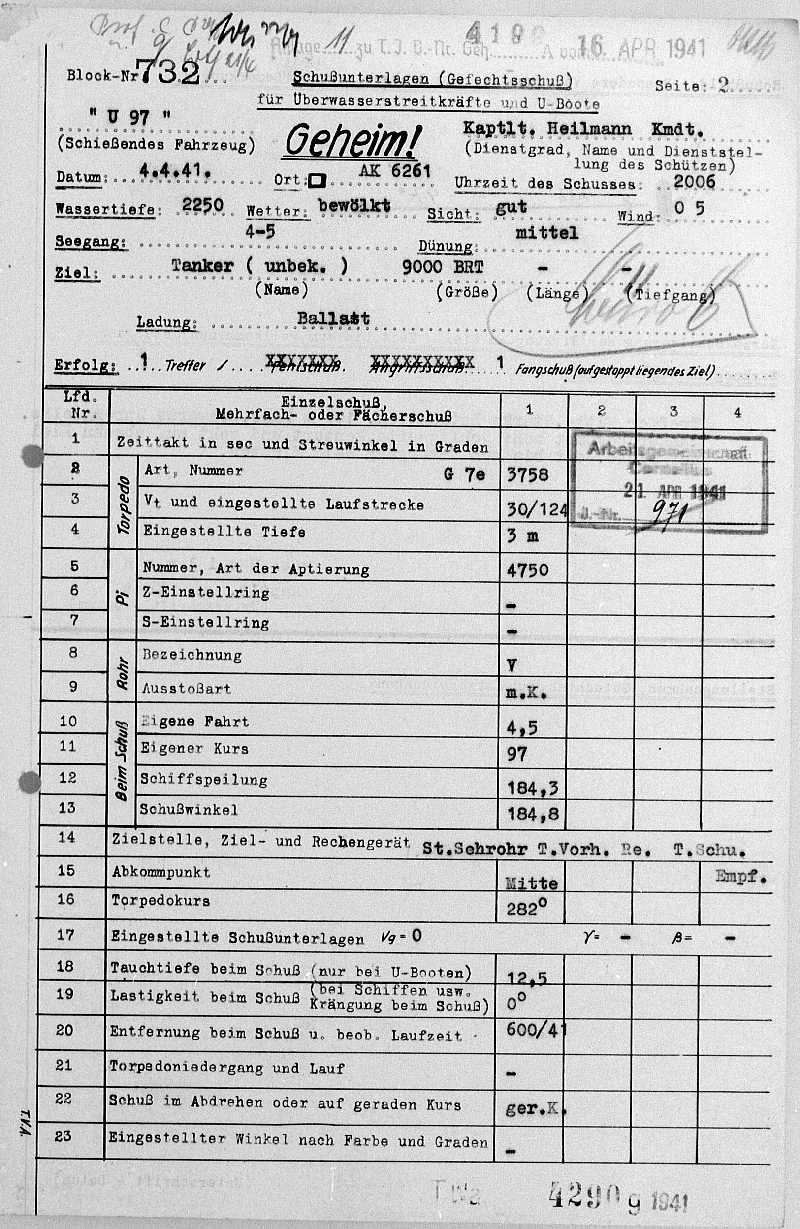 Prof.
Anlage 11 zu T.I.B.-Nr. Geh. 4190 A vom 16 APR 1941
Block-Nr 732
Schußunterlagen (Gefechtsschuß)
Seite: 2
für Überwasserstreitkräfte und U-Boote
" U 97 "
(Schießendes Fahrzeug)
Geheim!
Kaptlt. Heilmann Kmdt.
(Dienstgrad, Name und Dienststel-
lung des Schützen)
Datum: 4.4.41. Ort: AK 6261 Uhrzeit des Schusses: 2006
Wassertiefe: 2250 Wetter: bewölkt Sicht: gut Wind: O 5
Seegang: 4-5 Dünung: mittel
Ziel: Tanker ( unbek. ) 9000 BRT - -
(Name) (Größe) (Länge) (Tiefgang)
Ladung: Ballast
Erfolg: 1 Treffer / Fehlschuß. Angriffsschuß. 1 Fangschuß (auf gestoppt liegendes Ziel)
Lfd. Nr. Einzelschuß, Mehrfach- oder Fächerschuß 1 2 3 4
1 Zeittakt in sec und Streuwinkel in Graden
Arbeitsgemeinschaft
Cornelius
21 APR 1941
J.-Nr. 971
Torpedo
2 Art, Nummer G 7e 3758
3 Vt und eingestellte Laufstrecke 30/124
4 Eingestellte Tiefe 3 m
Pi
5 Nummer, Art der Aptierung 4750
6 Z-Einstellring -
7 S-Einstellring -
Rohr
8 Bezeichnung V
9 Ausstoßart m.K.
Beim Schuß
10 Eigene Fahrt 4,5
11 Eigener Kurs 97
12 Schiffspeilung 184,3
13 Schußwinkel 184,8
14 Zielstelle, Ziel- und Rechengerät St.Sehrohr T.Vorh. Re. T.Schu.
Empf.
15 Abkommpunkt Mitte
16 Torpedokurs 282°
17 Eingestellte Schußunterlagen Vg = 0 γ = - β = -
18 Tauchtiefe beim Schuß (nur bei U-Booten) 12,5
19 Lastigkeit beim Schuß (bei Schiffen usw. Krängung beim Schuß) 0°
20 Entfernung beim Schuß u. beob. Laufzeit 600/41
21 Torpedoniedergang und Lauf -
22 Schuß im Abdrehen oder auf geraden Kurs ger.K.
23 Eingestellter Winkel nach Farbe und Graden -
T.V.A.
TWa 4290 g 1941